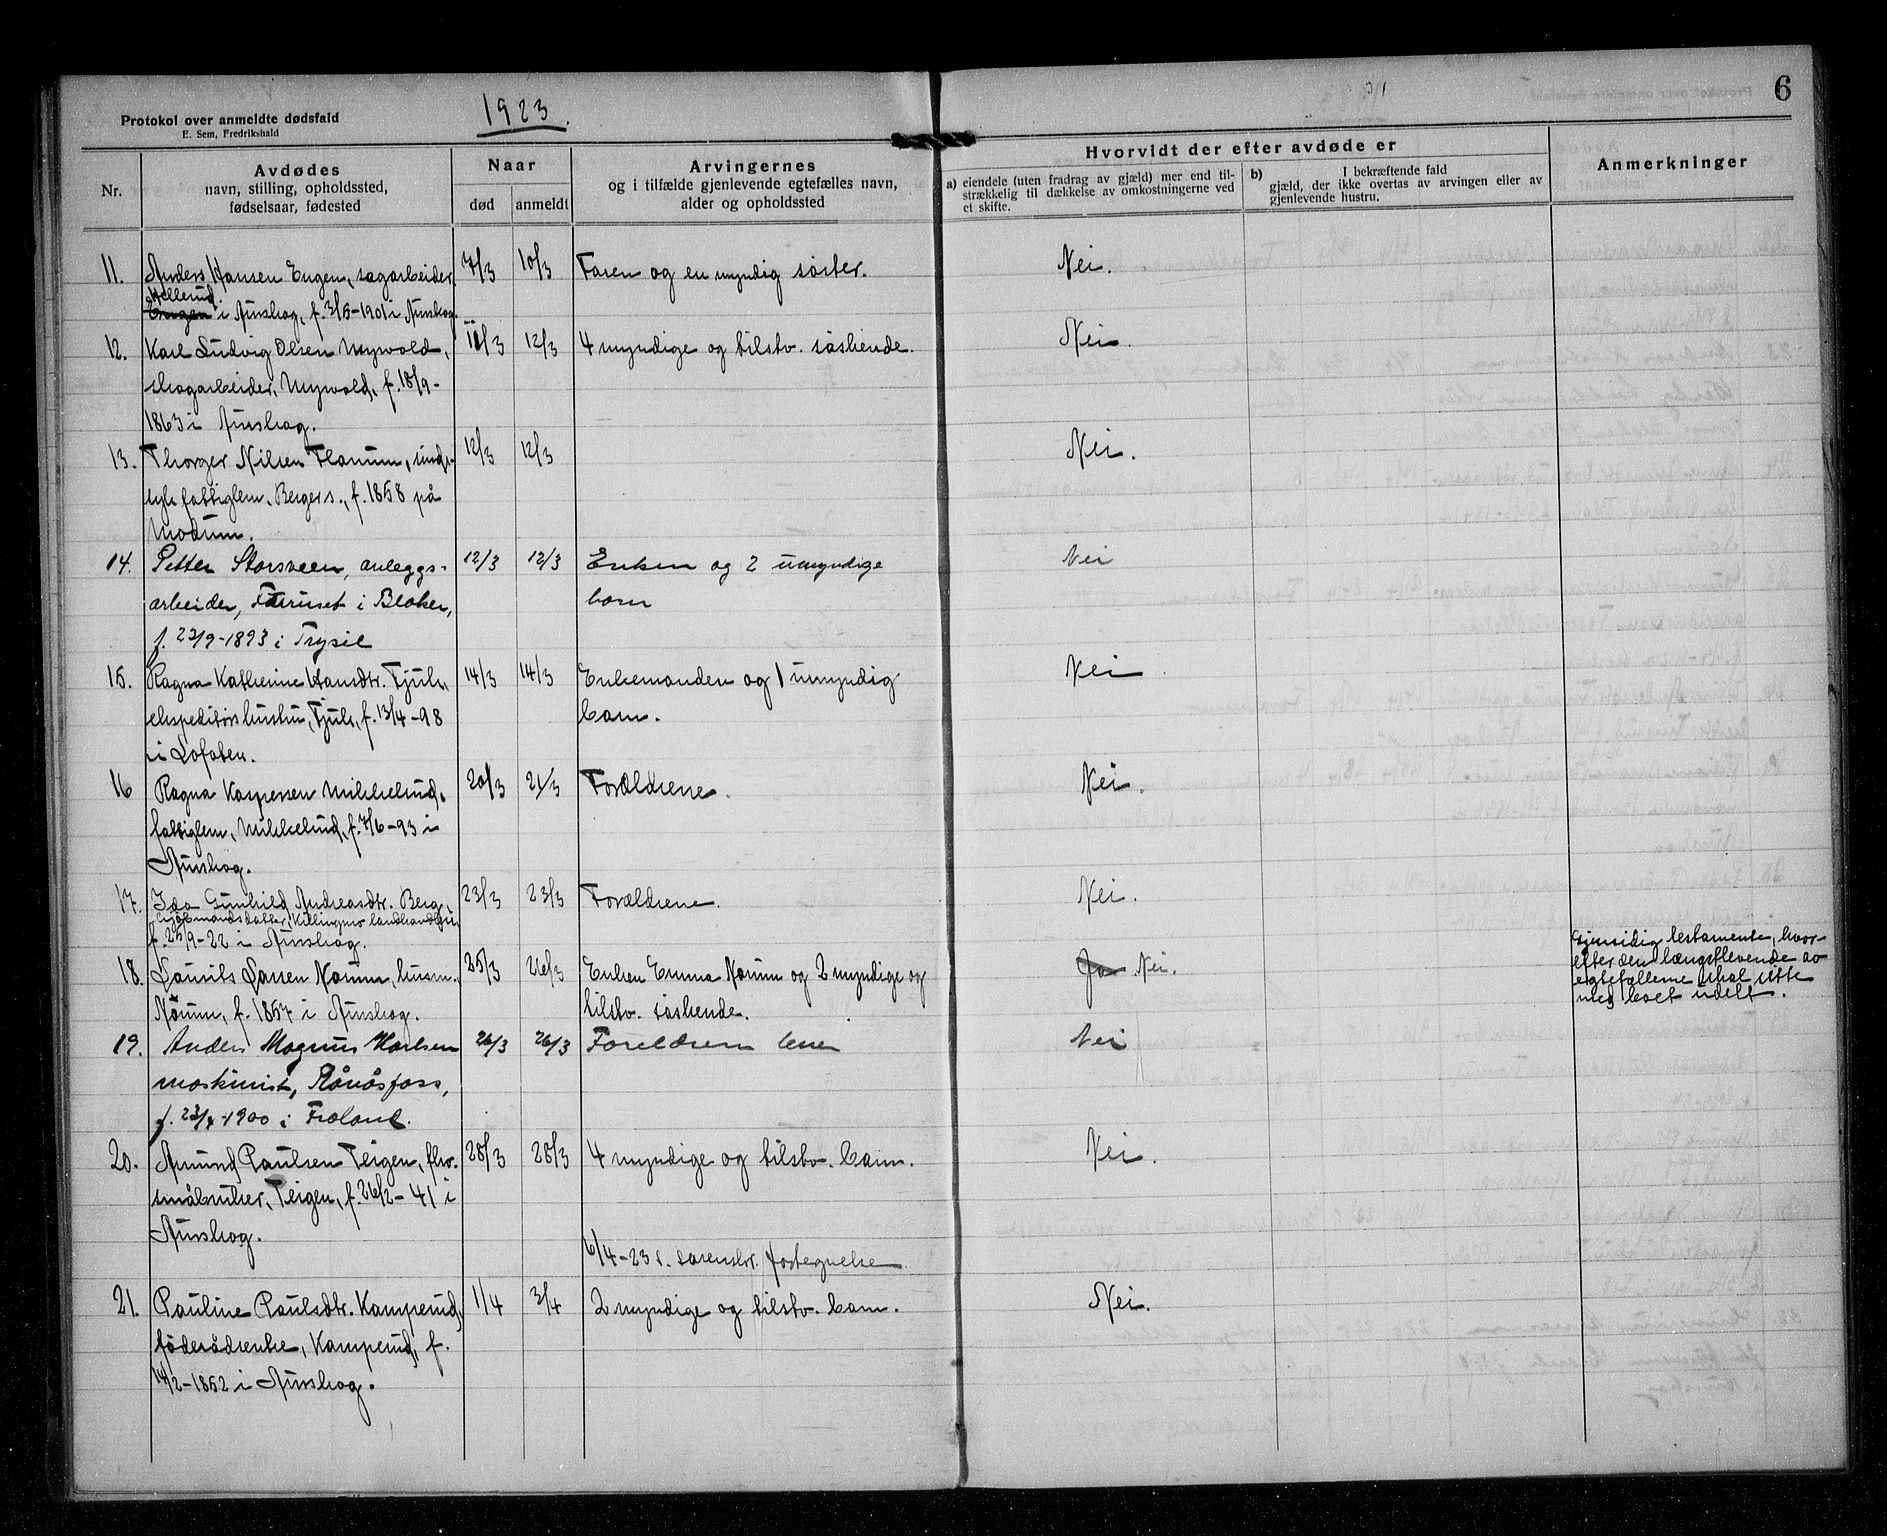 Protokol over anmeldte dødsfald
E. Sem, Fredrikshald
1923.
6
Nr.
Avdødes
navn, stilling, opholdssted,
fødselsaar, fødested
Naar
død
anmeldt
Arvingernes
og i tilfælde gjenlevende egtefælles navn,
alder og opholdssted
Hvorvidt der efter avdøde er
a) eiendele (uten fradrag av gjæld) mer end til-
strækkelig til dækkelse av omkostningerne ved
et skifte.
b) I bekræftende fald
gjæld, der ikke overtas av arvingen eller av
gjenlevende hustru.
Anmerkninger
11. Anders Hansen Engen, sagarbeider 7/3 10/3 Faren og en myndig søster. Nei.
Hellerud
Engen i Aurskog, f. 3/5-1901 i Aurskog.
12. Karl Ludvig Olsen Myrvold, 11/3 12/3 4 myndige og tilstv. søskende. Nei.
skogarbeider, Myrvold, f. 18/9-
1863 i Aurskog.
13. Thorger Nilsen Flannum, sinds- 12/3 12/3 Nei.
syk fattiglem, Bergers., f. 1858 på
Modum.
14. Petter Storsveen, anleggs- 12/3 12/3 Enken og 2 umyndige Nei
arbeider, i Blaker, barn
f. 22/9-1893 i Trysil
15. Ragna Katherine Hansdtr. Fjuk, 14/3 14/3 Enkemanden og 1 umyndig Nei.
ekspeditørs hustru, Fjuk, f. 13/4-98 barn.
i Lofoten.
16 Ragna Kaspersen Mikkelrud, 20/3 21/3 Forældrene. Nei.
fattiglem, Mikkelrud, f. 7/6-93 i
Aurskog.
17. Ida Gunhild Andreasdtr. Berg, 23/3 23/3 Forældrene. Nei.
Kjøbmandsdatter, Killingmo landhandleri,
f. 25/9-22 i Aurskog.
18. Laurits Larsen Nørum, husm., 25/3 26/3 Enken Emma Nørum og 2 myndige og Ja Nei.
Nørum, f. 1857 i Aurskog. tilstv. søskende.
Gjensidig testamente, hvor-
efter den længstlevende av
egtefællerne skal sitte
med boet udelt.
19. Anders Magnus Karlsen 26/3 26/3 Foreldrene lever Nei
maskinist, Rånåsfoss,
f. 23/4-1900 i Froland.
20. Amund Paulsen Teigen, fhv. 28/3 28/3 4 myndige og tilstv. barn. Nei.
småbruker, Teigen, f. 26/2-41 i
Aurskog.
6/4-23 s. sorenskr. fortegnelse
21. Pauline Paulsdtr. Kamperud, 1/4 3/4 2 myndige og tilstv. barn. Nei.
føderådsenke, Kamperud, f.
14/2-1852 i Aurskog.